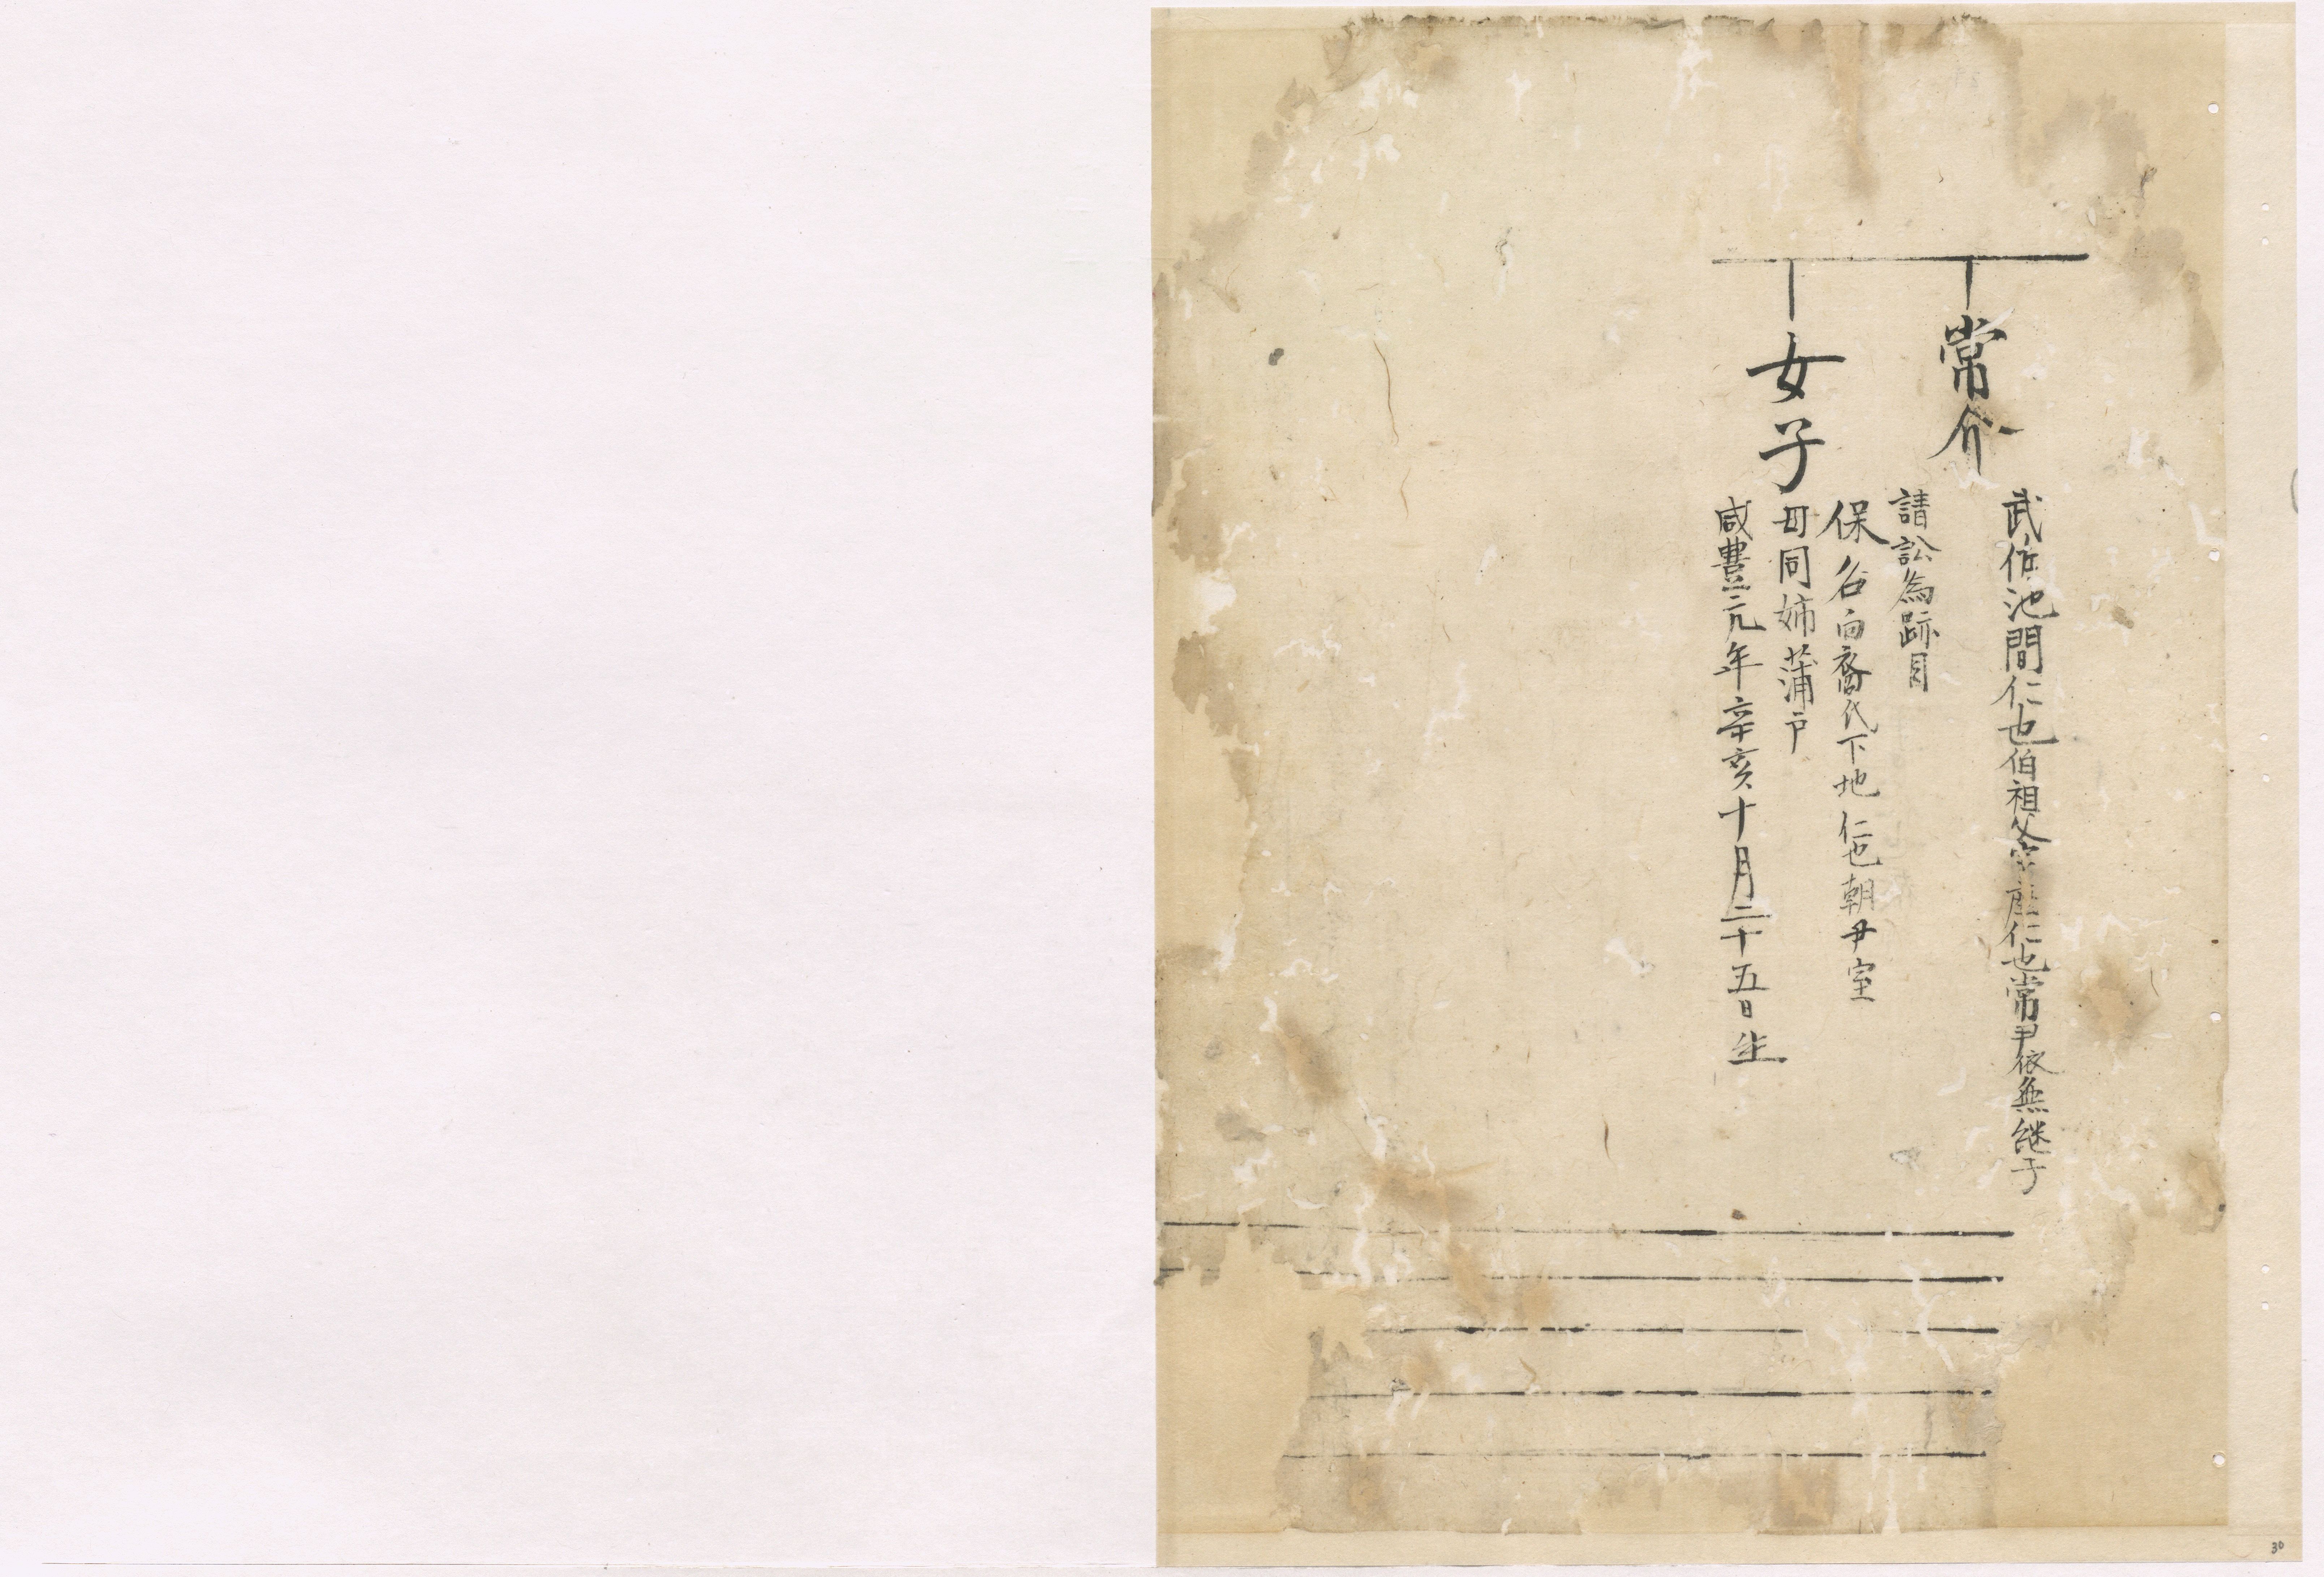 常介
武佐池間仁也伯祖父宮座仁也常尹依無継子
請訟為跡目
女子
保名向裔氏下地仁也朝尹室
母同姉蒲戸
咸豊元年辛亥十月二十五日生
30